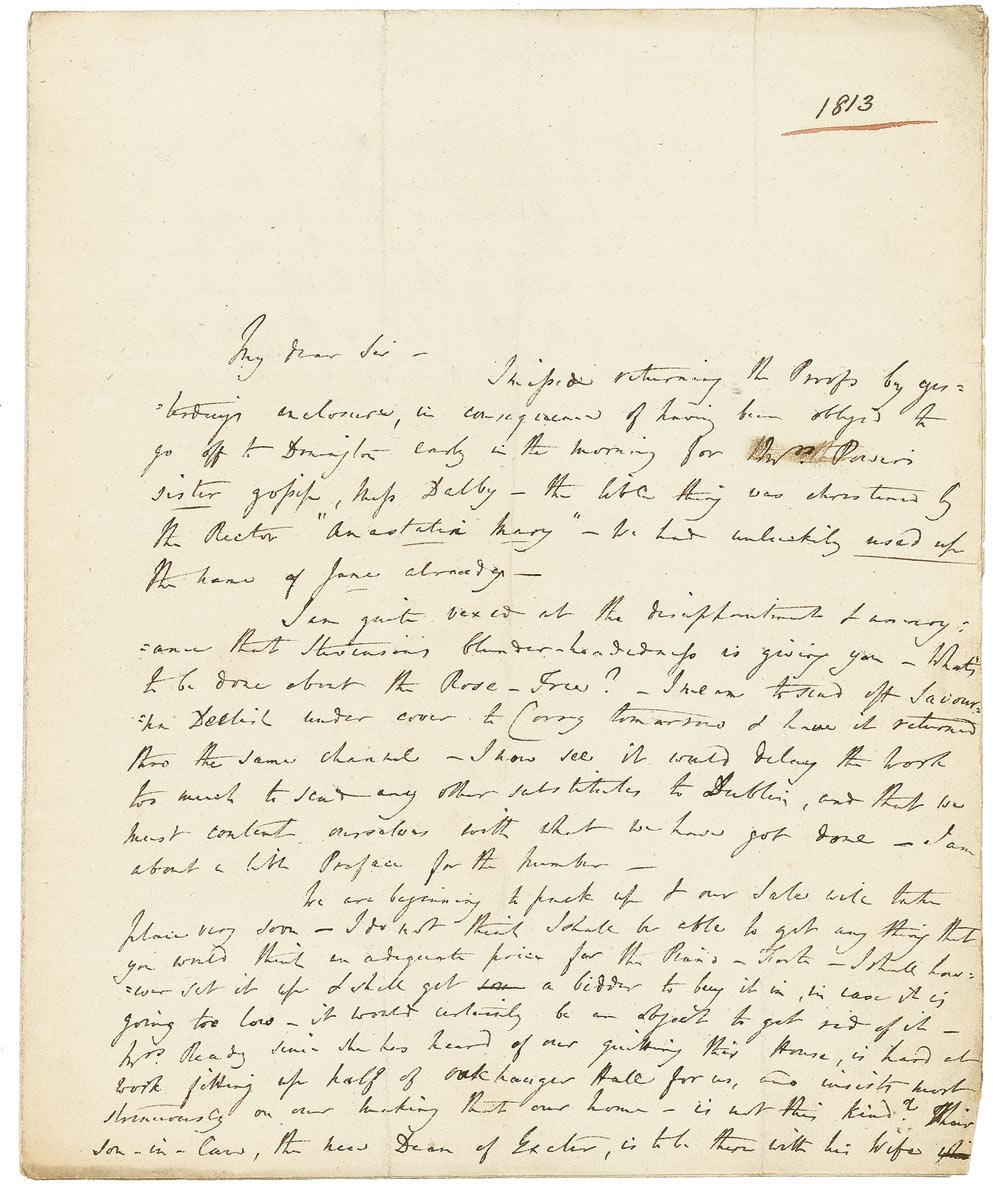 1813
My dear Sir —
I missed returning the Proofs by yes=
=terday's enclosure, in consequence of having been obliged to
go off to Donington early in the morning for Mrs. Power's
sister gossip, Miss Dalby — the little thing was christened by
the Rector "Anastatia Mary" — We had unluckily used up
the name of Jane already —
I am quite vexed at the disappointment & annoy=
=ance that Stevenson's blunder-headedness is giving you — What's
to be done about the Rose-Tree? — I mean to send off Saviour=
=neen Deelish under cover to Corry tomorrow & have it returned
thro the same channel — I now see it would delay the Work
too much to send any other substitutes to Dublin, and that we
must content ourselves with what we have got done — I am
about a little Preface for the Number —
We are beginning to pack up & our Sale will take
place very soon — I do not think I shall be able to get any thing that
you would think an adequate price for the Piano-Forte — I shall how=
=ever set it up & shall get som a bidder to buy it in, in case it is
going too low — it would certainly be an object to get rid of it —
Mrs. Ready since she has heard of our quitting this House, is hard at
work fitting up half of Oakhanger Hall for us, and insists most
strenuously on our making that our home — is not this kind? Their
son-in-Law, the new Dean of Exeter, is to be there with his Wife